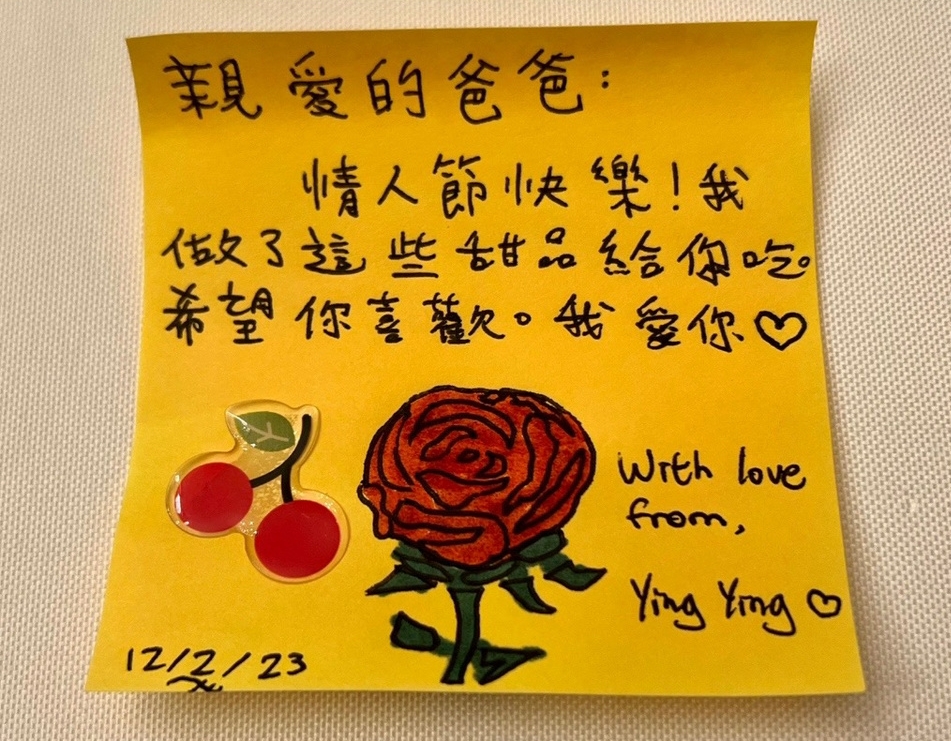 親愛的爸爸:
情人節快樂!我
做了這些甜品給你吃。
希望你喜歡。我愛你♡
With love
from,
Ying Ying ♡
12/2/23